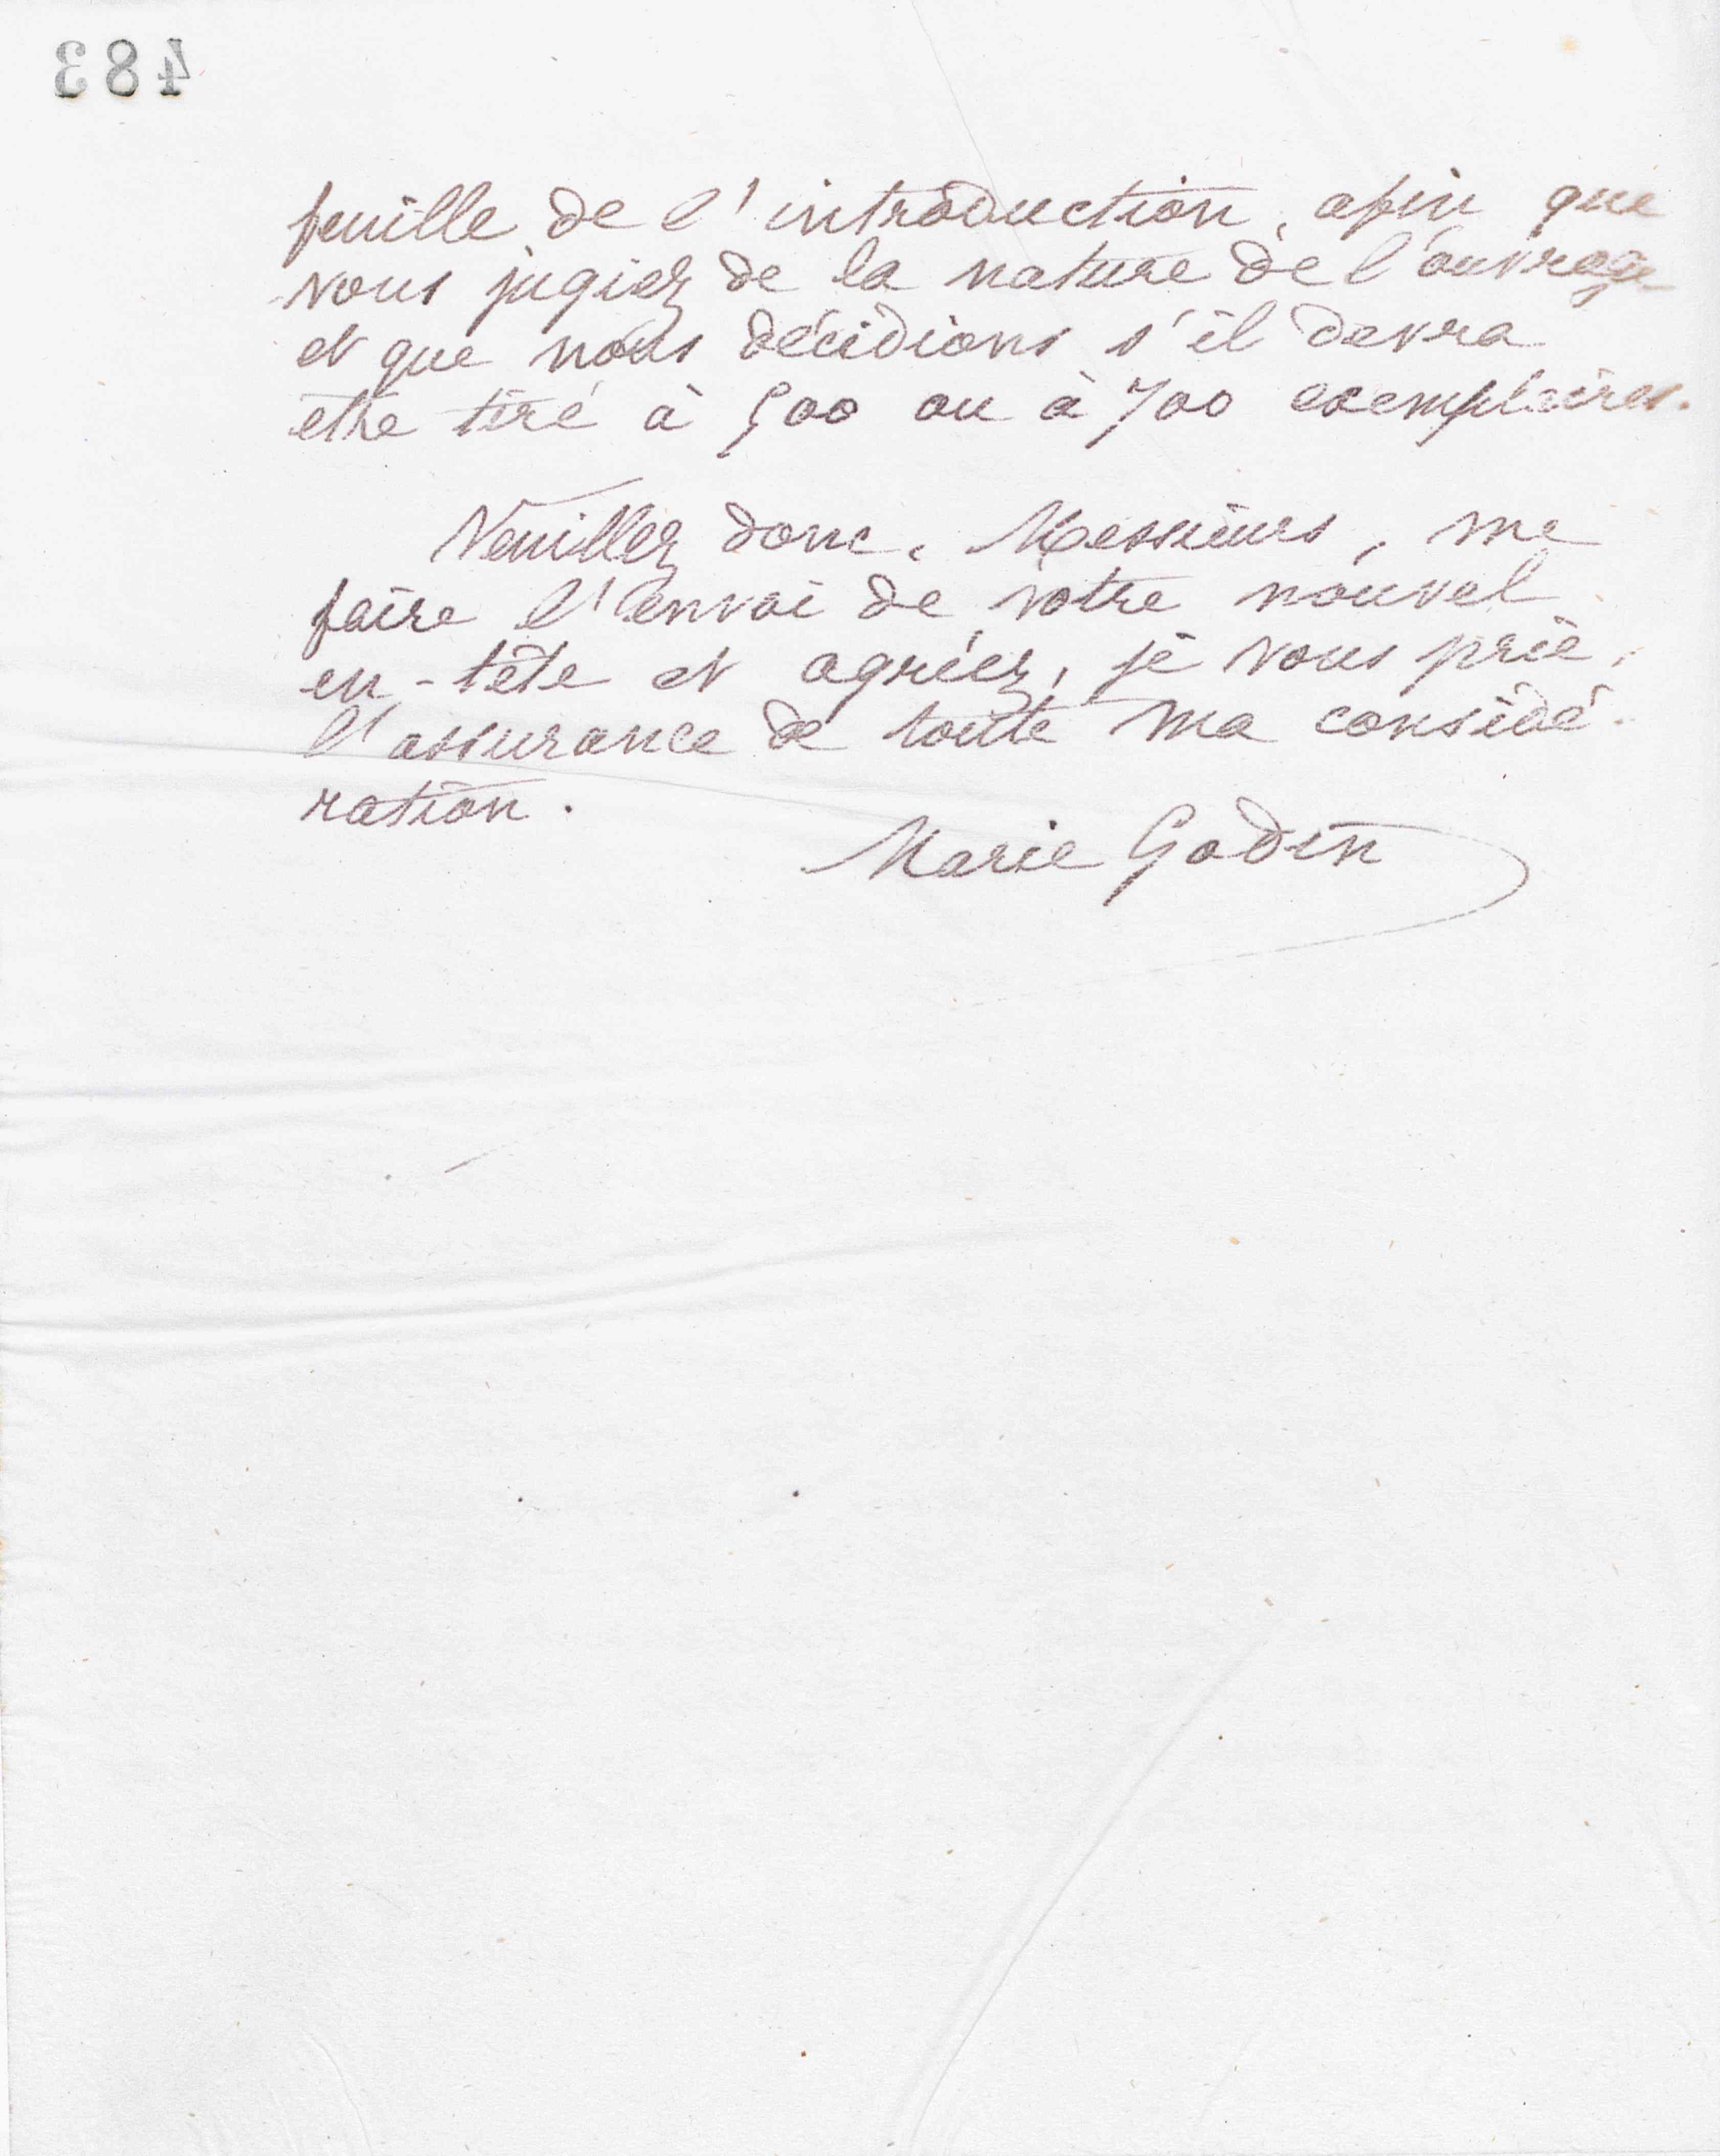 483
feuille de l'introduction, afin que
vous jugiez de la nature de l'ouvrage
et que nous décidions s'il devra
être tiré à 500 ou à 700 exemplaires.
Veuillez donc, Messieurs, me
faire l'envoi de votre nouvel
en-tête et agréez, je vous prie,
l'assurance de toute ma considé-
ration.
Marie Godin